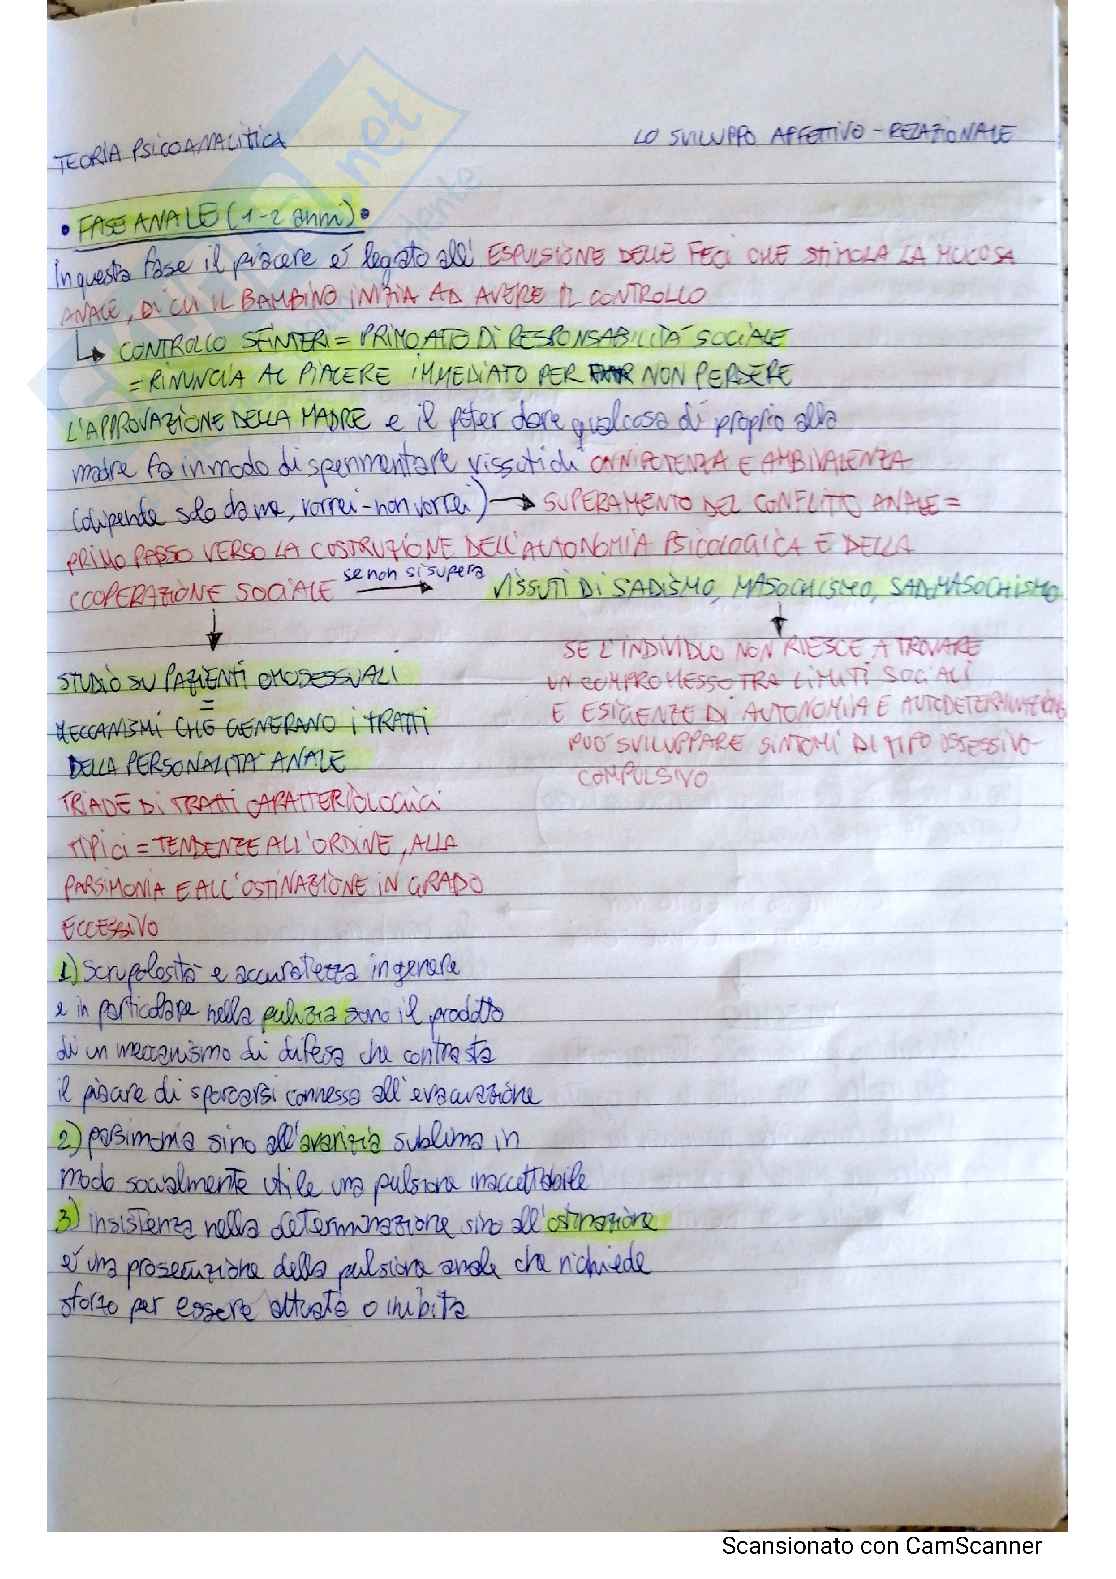 TEORIA PSICOANALITICA
LO SVILUPPO AFFETTIVO-RELAZIONALE
• FASE ANALE (1-2 anni) •
In questa fase il piacere è legato all' ESPULSIONE DELLE FECI CHE STIMOLA LA MUCOSA
ANALE, DI CUI IL BAMBINO INIZIA AD AVERE IL CONTROLLO
↳ CONTROLLO SFINTERI = PRIMO ATTO DI RESPONSABILITÀ SOCIALE
= RINUNCIA AL PIACERE IMMEDIATO PER NON PERDERE
L'APPROVAZIONE DELLA MADRE e il poter dare qualcosa di proprio alla
madre fa in modo di sperimentare vissuti di ONNIPOTENZA E AMBIVALENZA
(dipende solo da me, vorrei-non vorrei) → SUPERAMENTO DEL CONFLITTO ANALE =
PRIMO PASSO VERSO LA COSTRUZIONE DELL'AUTONOMIA PSICOLOGICA E DELLA
COOPERAZIONE SOCIALE se non si supera → VISSUTI DI SADISMO, MASOCHISMO, SADOMASOCHISMO
SE L'INDIVIDUO NON RIESCE A TROVARE
UN COMPROMESSO TRA LIMITI SOCIALI
E ESIGENZE DI AUTONOMIA E AUTODETERMINAZIONE
PUÒ SVILUPPARE SINTOMI DI TIPO OSSESSIVO-
COMPULSIVO
STUDIO SU PAZIENTI OMOSESSUALI
=
MECCANISMI CHE GENERANO I TRATTI
DELLA PERSONALITÀ ANALE
TRIADE DI TRATTI CARATTERIOLOGICI
TIPICI = TENDENZE ALL'ORDINE, ALLA
PARSIMONIA E ALL'OSTINAZIONE IN GRADO
ECCESSIVO
1) Scrupolosità e accuratezza in genere
e in particolare nella pulizia sono il prodotto
di un meccanismo di difesa che contrasta
il piacere di sporcarsi connesso all'evacuazione
2) parsimonia sino all'avarizia sublima in
modo socialmente utile una pulsione inaccettabile
3) insistenza nella determinazione sino all'ostinazione
è una prosecuzione della pulsione anale che richiede
sforzo per essere attuata o inibita
Scansionato con CamScanner